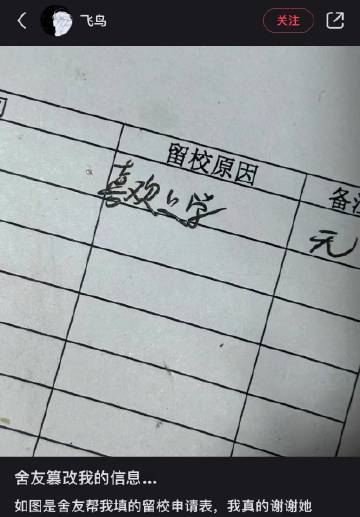 飞鸟
关注
留校原因
喜欢上学
无
舍友篡改我的信息...
如图是舍友帮我填的留校申请表，我真的谢谢她